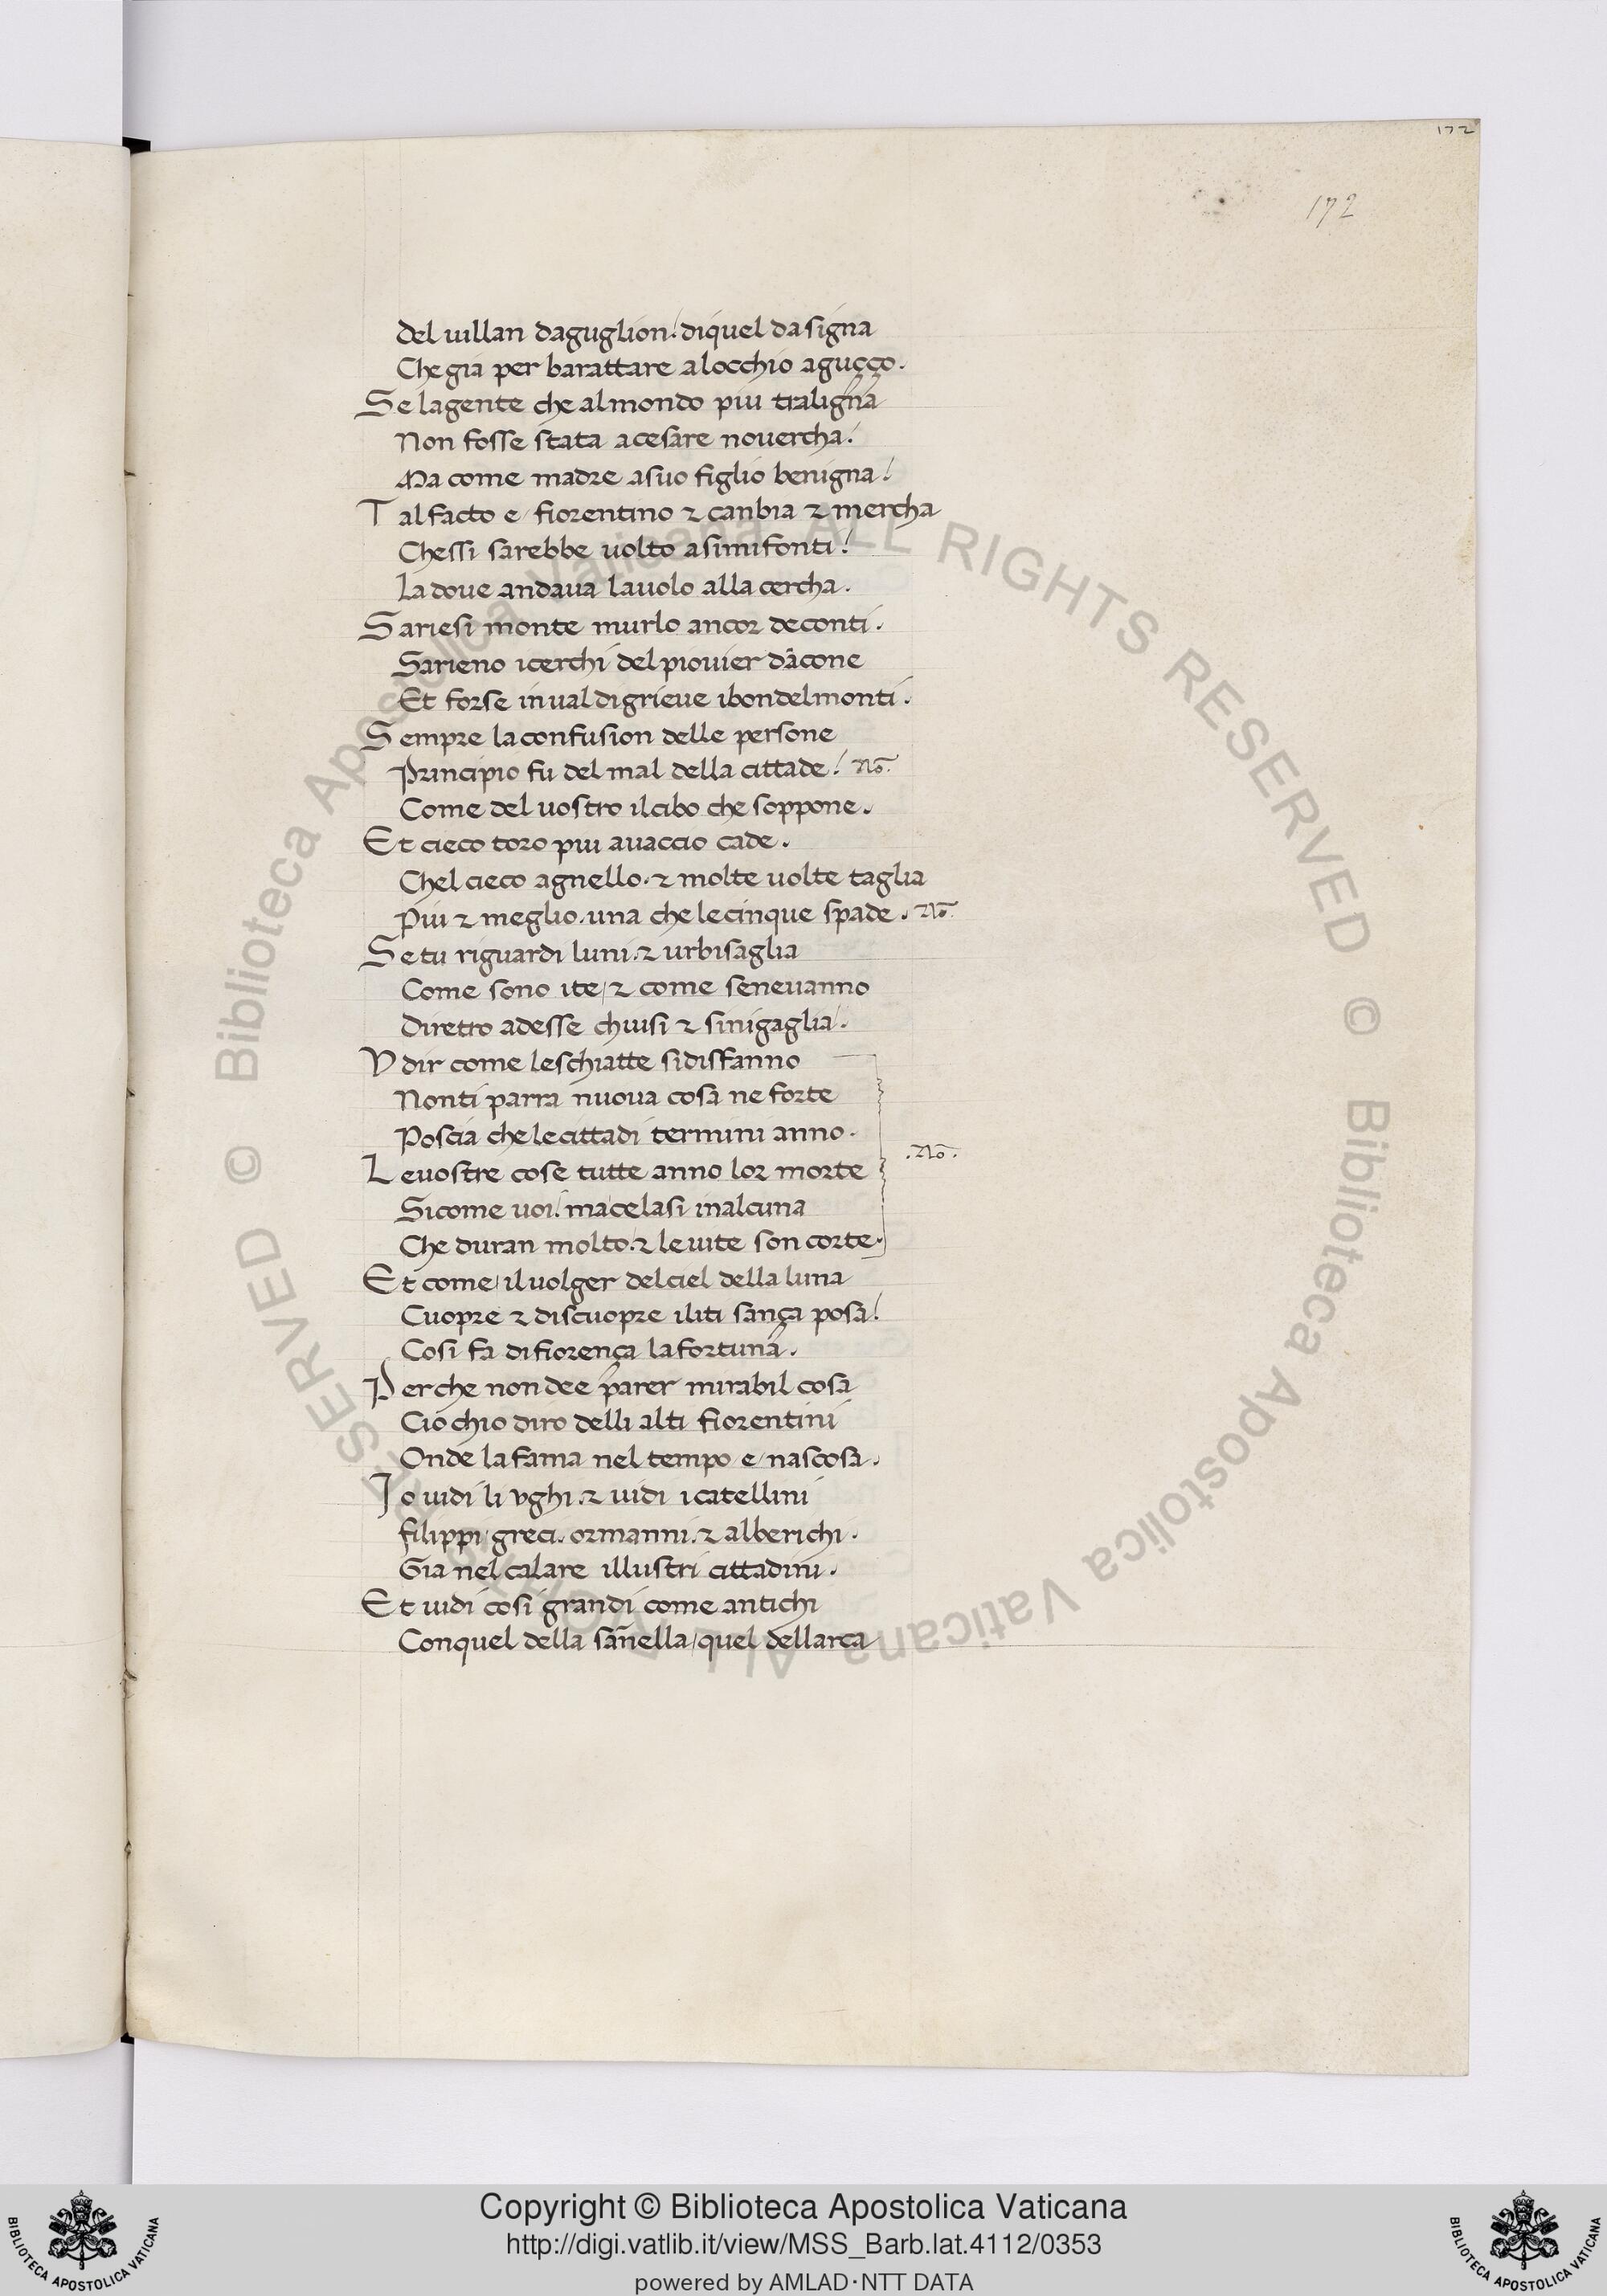 172
172
del uillan daguglion! diquel dasigna
Che gia per barattare alocchio aguçço.
Se lagente che almondo piu traligna
Non fosse stata acesare nouercha!
Ma come madre asuo figlio benigna!
Tal facto e/ fiorentino & canbia & mercha
Chessi sarebbe uolto asimifonti!
La doue andaua lauolo alla cercha.
Sariesi monte murlo ancor deconti.
Sarieno icerchi del piouier dacone
Et forse inualdigrieue ibondelmonti.
Sempre laconfusion delle persone
Principio fu del mal della cittade! No.
Come del uostro ilcibo che soppone.
Et cieco toro piu auaccio cade.
Chel cieco agnello. & molte uolte taglia
Piu & meglio. una che lecinque spade. No.
Se tu riguardi luni. & urbisaglia
Come sono ite/ & come seneuanno
Diretro adesse chiusi & sinigaglia!
Vdir come leschiatte sidisfanno
Nonti parra nuoua cosa ne forte
Poscia chelecittadi termini anno.
.No.
Leuostre cose tutte anno lor morte
Sicome uoi! macelasi inalcuna
Che duran molto. & leuite son corte.
Et come/ iluolger delciel della luna
Cuopre & discuopre iliti sança posa!
Cosi fa difiorença lafortuna.
Per che non dee parer mirabil cosa
Cio chio diro delli alti fiorentini
Onde lafama nel tempo e/ nascosa.
Jo uidi li vghi. & uidi icatellini
filippi/ greci. ormanni. & alberichi.
Gia nel calare illustri cittadini.
Et uidi cosi grandi come antichi
Conquel della sañella/ quel dellarca
© Biblioteca Apostolica Vaticana ALL RIGHTS RESERVED © Biblioteca Apostolica Vaticana ALL RIGHTS RESERVED
Copyright © Biblioteca Apostolica Vaticana
http://digi.vatlib.it/view/MSS_Barb.lat.4112/0353
powered by AMLAD·NTT DATA
BIBLIOTECA APOSTOLICA VATICANA
BIBLIOTECA APOSTOLICA VATICANA